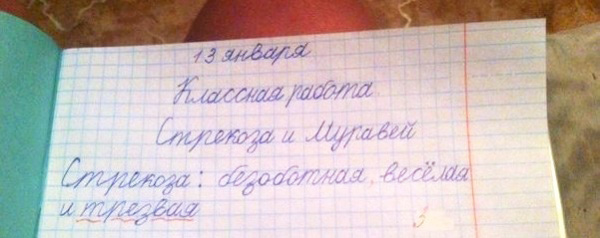 13 января
Классная работа.
Стрекоза и Муравей
Стрекоза: безоботная, весёлая
и трезвая
3